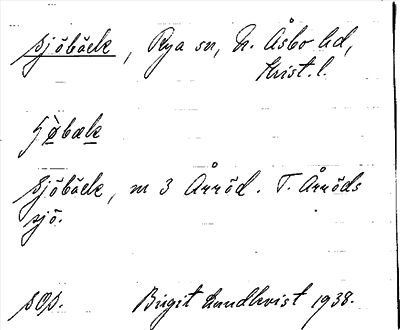 Sjöbäck, Rya sn, N. Åsbo hd,
Krist. l.
Sjöbäck, m 3 Årröd. T. Årröds
sjö.
SOS. Birgit Lundkvist 1938.